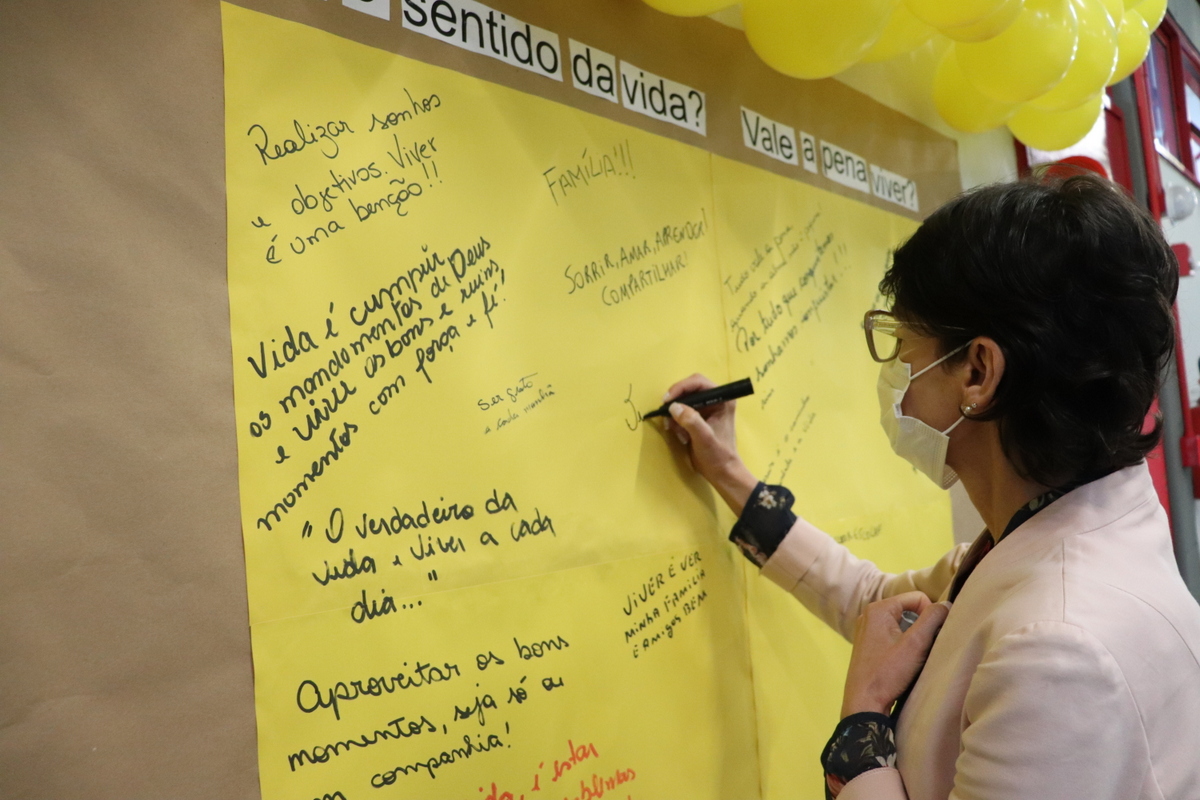 o sentido da vida?
Vale a pena viver?
Realizar sonhos
e objetivos. Viver
é uma benção!!
FAMÍLIA!!!
SORRIR, AMAR, APRENDER!
COMPARTILHAR!
Vida é cumprir
os mandamentos de Deus
e viver os bons e ruins
momentos com força e fé!
Ser grato
a cada manhã
"O verdadeiro da
vida e viver a cada
dia..."
VIVER E VER
MINHA FAMILIA
E AMIGOS BEM
Aproveitar os bons
momentos, seja só ou
em companhia!
é estar
Tudo vale a pena
Por tudo que conquistamos